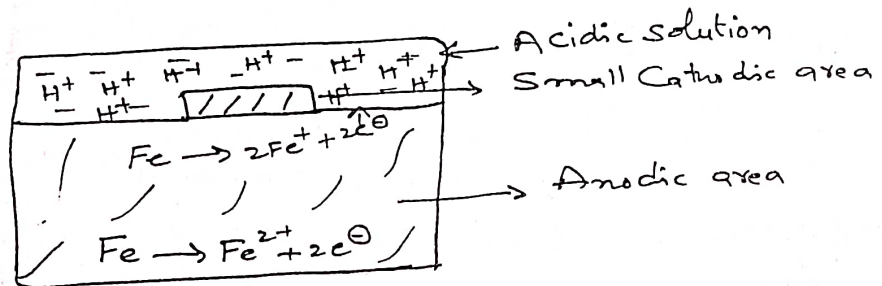 Acidic Solution
H⁺ H⁺ H⁺ H⁺ H⁺ H⁺
H⁺ H⁺ H⁺
Small Cathodic area
Fe → 2Fe⁺ + 2e⊖
Anodic area
Fe → Fe²⁺ + 2e⊖